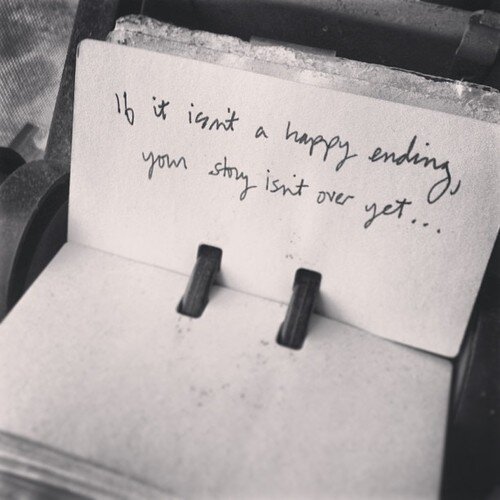 If it isn't a happy ending,
your story isn't over yet...